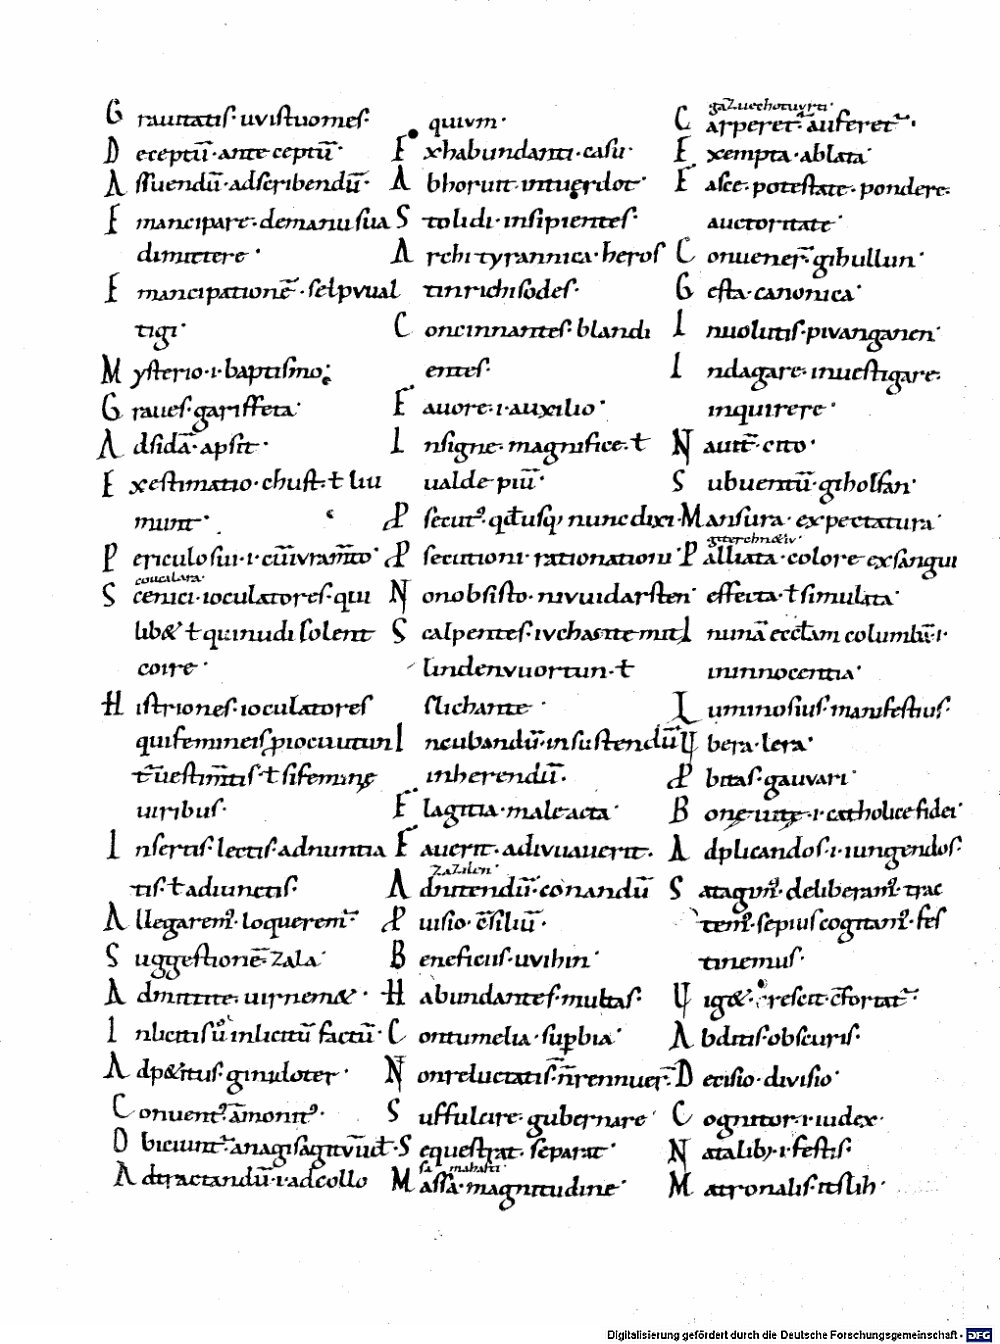 Grauitatis· uvistuomes·
Deceptū· ante ceptū·
Assuendū· adscribendū·
Emancipare· de manu sua
dimittere·
Emancipationē· selpvual
tigi·
Mysterio· i· baptismo;
Graues· gariffeta·
Adsidā· apsit·
Existimatio· chust· ł liu
munt·
Periculo sui· i·
couculara·
Scenici· ioculatores· qui
lib& ł qui nudi solent
coire·
Histriones· ioculatores
qui femineis
ł si feminę
uiribus·
Insertis· lectis· adnuntia
tis· ł adiunctis·
Allegarem᷒· loquerem᷒·
Suggestionē· zala·
Admittite· uirnem&·
inlicitū factū·
Adp&itus· giuuloter·
Conuent᷒· āmonit᷒·
Adtractandū· i· adcollo
quivm·
Exhabundanti· casu·
Abhoruit·
Stolidi· insipientes·
Archityrannica· heros
tinrichisodes·
Concinnantes· blandi
entes·
Fauore· i· auxilio·
Insigne· magnifice· ł
ualde piū·
Psecut᷒· nunc dixi·
Psecutioni· rationationi·
Non obsisto· nivuidarsten·
Scalpentes·
lindenvuortun· ł
slichante·
Incubandū· insustendū
inherendū·
Flagitia· male acta·
Fauerit· adivuauerit·
zazilen·
Adnitendū· conandū
Puisio· c̄siliū·
Beneficiis· uvihin·
Habundantes· multas·
Contumelia· supbia·
Non reluctatis· n̄ rennuer̄·
Suffulcire· gubernare·
Sequestrat· separat·
Massa· magnitudine·
Carperet̄· auferet̄·
Exempta· ablata·
Fasce· potestate· pondere·
auctoritate·
Conuener̄· gihullun·
Gesta· canonica·
Inuolutis· pivanganen·
Indagare· inuestigare·
inquirere·
Naut̄· cito·
Subuentū· giholfan·
Mansura· expectatura·
Palliata· colore exsangui
effecta· ł simulata·
In unā eccłam columbin̄· i·
in innocentia·
Luminosius· manifestius·
Vbera· lera·
Pbitas· gauvari·
Bonę uitę· i· catholice fidei·
Adplicandos· i· iungendos·
Satagim᷒· deliberam᷒· trac
tem᷒· sepius cogitam᷒· fes
tinemus·
Vig&· crescit· c̄fortat᷒·
Abditis· obscuris·
Decisio· divisio·
Cognitor· i· iudex·
Natalib;· i· festis·
Matronalis· itslih·
Digitalisierung gefördert durch die Deutsche Forschungsgemeinschaft - DFG